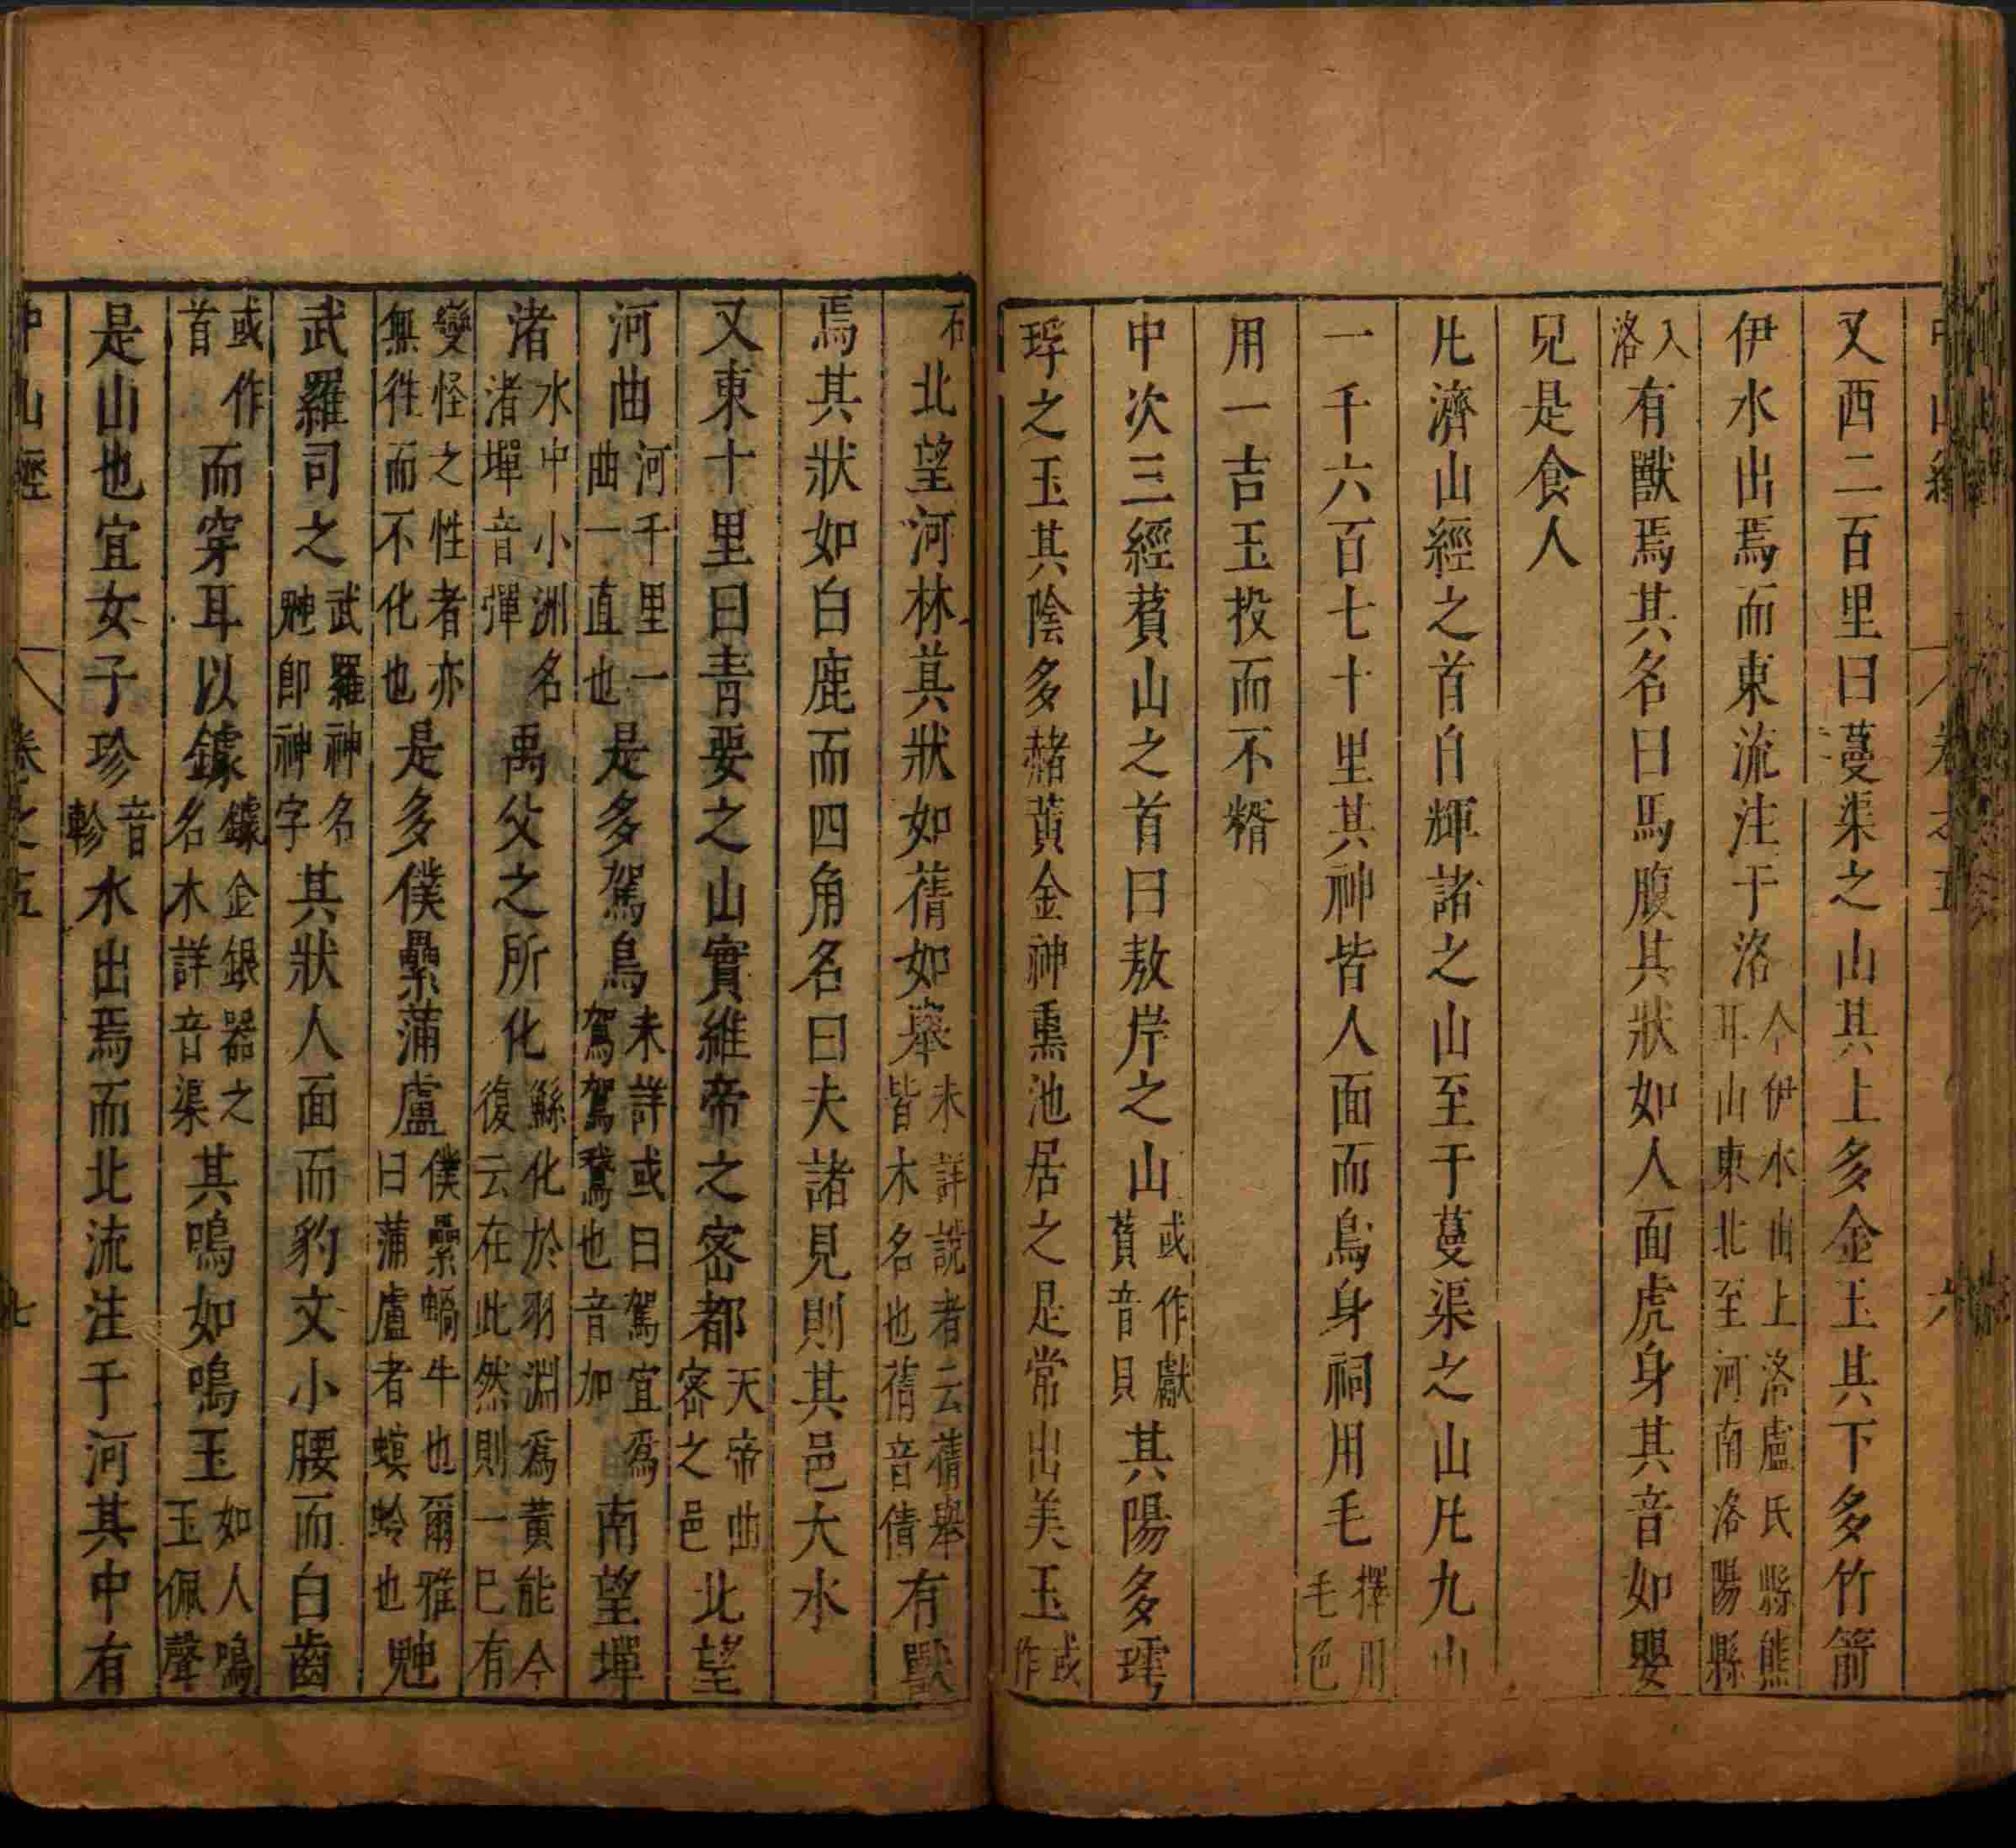 中山經 卷之五 六
又西二百里曰蔓渠之山其上多金玉其下多竹箭
伊水出焉而東流注于洛今伊水出上洛盧氏縣熊耳山東北至河南洛陽縣
入洛有獸焉其名曰馬腹其狀如人面虎身其音如嬰
兒是食人
凡濟山經之首自輝諸之山至于蔓渠之山凡九山
一千六百七十里其神皆人面而鳥身祠用毛擇用毛色
用一吉玉投而不糈
中次三經萯山之首曰敖岸之山或作獻萯音貝其陽多㻬
琈之玉其陰多赭黃金神熏池居之是常出美玉或作
石北望河林其狀如蒨如舉未詳說者云蒨舉皆木名也蒨音倩有獸
焉其狀如白鹿而四角名曰夫諸見則其邑大水
又東十里曰青要之山實維帝之密都天帝曲密之邑北望
河曲河千里一曲一直也是多駕鳥未詳或曰駕宜爲駕駕鵞也音加南望墠
渚水中小洲名渚墠音彈禹父之所化鯀化於羽淵爲黃能今復云在此然則一巳有
變怪之性者亦無徃而不化也是多僕纍蒲盧僕纍蝸牛也爾雅曰蒲盧者螟蛉也䰠
武羅司之武羅神名䰠即神字其狀人面而豹文小腰而白齒
或作首而穿耳以鐻鐻金銀器之名未詳音渠其鳴如鳴玉如人鳴玉佩聲
是山也宜女子畛音軫水出焉而北流注于河其中有
中山經 卷之五 七